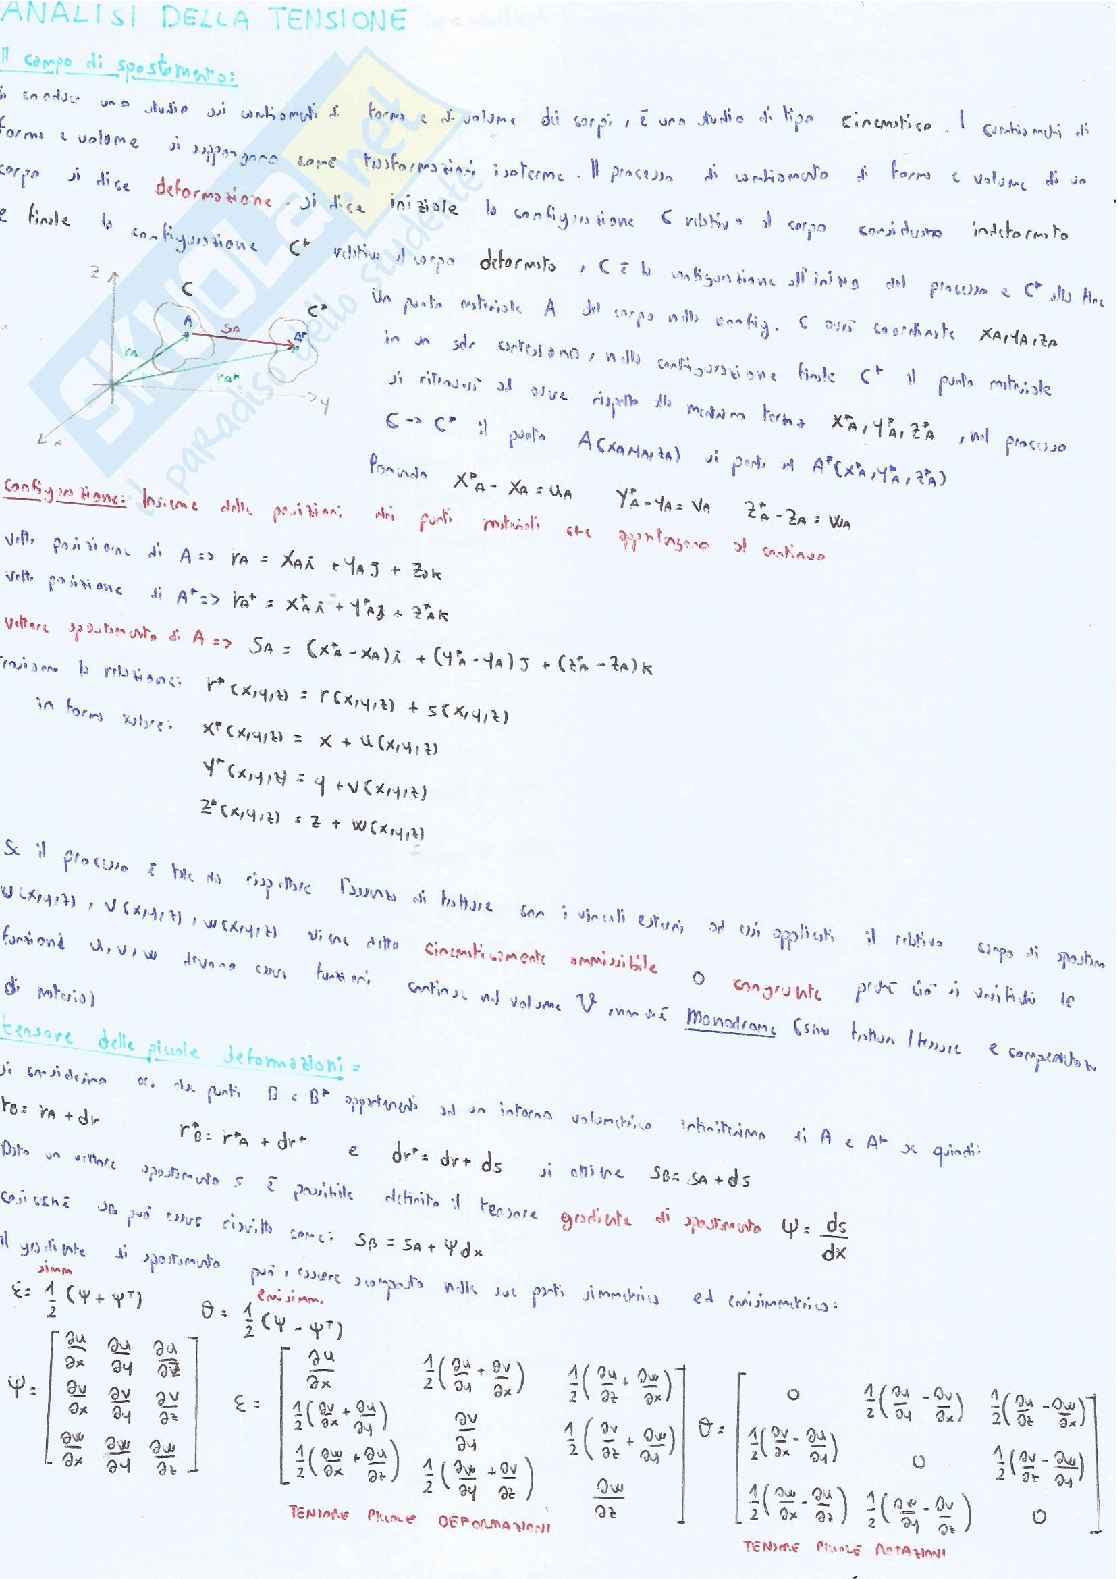 ANALISI DELLA TENSIONE
Il campo di spostamento:
si conduce uno studio sui cambiamenti di forma e di volume dei corpi, è uno studio di tipo cinematico. I cambiamenti di
forma e volume si suppongono come trasformazioni isoterme. Il processo di cambiamento di forma e volume di un
corpo si dice deformazione. si dice iniziale la configurazione C relativa al corpo considerato indeformato
e finale la configurazione C* relativa al corpo deformato, C è la configurazione all'inizio del processo e C* alla fine
Un punto materiale A del corpo nella config. C avrà coordinate xA, yA, zA
in un sdr cartesiano, nella configurazione finale C* il punto materiale
si ritroverà ad avere rispetto alla medesima terna x*A, y*A, z*A, nel processo
C -> C* il punto A(xA,yA,zA) si porta in A*(x*A, y*A, z*A)
Ponendo x*A - xA = uA y*A - yA = vA z*A - zA = wA
z
C
C*
A
SA
A*
rA
rA*
y
x
SKUOLA.net
il paradiso dello studente
configurazione: Insieme delle posizioni dei punti materiali che appartengono al continuo
vett. posizione di A => rA = xA i + yA j + zA k
vett. posizione di A* => rA* = x*A i + y*A j + z*A k
vettore spostamento di A => SA = (x*A - xA) i + (y*A - yA) j + (z*A - zA) k
la relazione: r*(x,y,z) = r(x,y,z) + s(x,y,z)
in forma scalare: x*(x,y,z) = x + u(x,y,z)
y*(x,y,z) = y + v(x,y,z)
z*(x,y,z) = z + w(x,y,z)
Se il processo è tale da rispettare l'assenza di fratture con i vincoli esterni ad essi applicati il relativo campo di spostam
u(x,y,z), v(x,y,z), w(x,y,z) viene detto cinematicamente ammissibile o congruente perché ciò si verifichi le
funzioni u, v, w devono essere funzioni continue nel volume V nonché monodrome (senza fratture / fessure e compenetrazioni
di materia)
tensore delle piccole deformazioni:
si considerino ora due punti B e B* appartenenti ad un intorno volumetrico infinitesimo di A e A* se quindi:
rB = rA + dr r*B = r*A + dr* e dr* = dr + ds si ottiene SB = SA + ds
Dato un vettore spostamento s è possibile definito il tensore gradiente di spostamento ψ = ds/dx
cosicché sB può essere riscritto come: SB = SA + ψ dx
il gradiente di spostamento può essere scomposto nelle sue parti simmetrica ed emisimmetrica:
simm emisimm.
ε = 1/2 (ψ + ψᵀ) θ = 1/2 (ψ - ψᵀ)
ψ = [∂u/∂x ∂u/∂y ∂u/∂z
∂v/∂x ∂v/∂y ∂v/∂z
∂w/∂x ∂w/∂y ∂w/∂z]
ε = [∂u/∂x 1/2(∂u/∂y + ∂v/∂x) 1/2(∂u/∂z + ∂w/∂x)
1/2(∂v/∂x + ∂u/∂y) ∂v/∂y 1/2(∂v/∂z + ∂w/∂y)
1/2(∂w/∂x + ∂u/∂z) 1/2(∂w/∂y + ∂v/∂z) ∂w/∂z]
θ = [0 1/2(∂u/∂y - ∂v/∂x) 1/2(∂u/∂z - ∂w/∂x)
1/2(∂v/∂x - ∂u/∂y) 0 1/2(∂v/∂z - ∂w/∂y)
1/2(∂w/∂x - ∂u/∂z) 1/2(∂w/∂y - ∂v/∂z) 0]
TENSORE PICCOLE DEFORMAZIONI
TENSORE PICCOLE ROTAZIONI